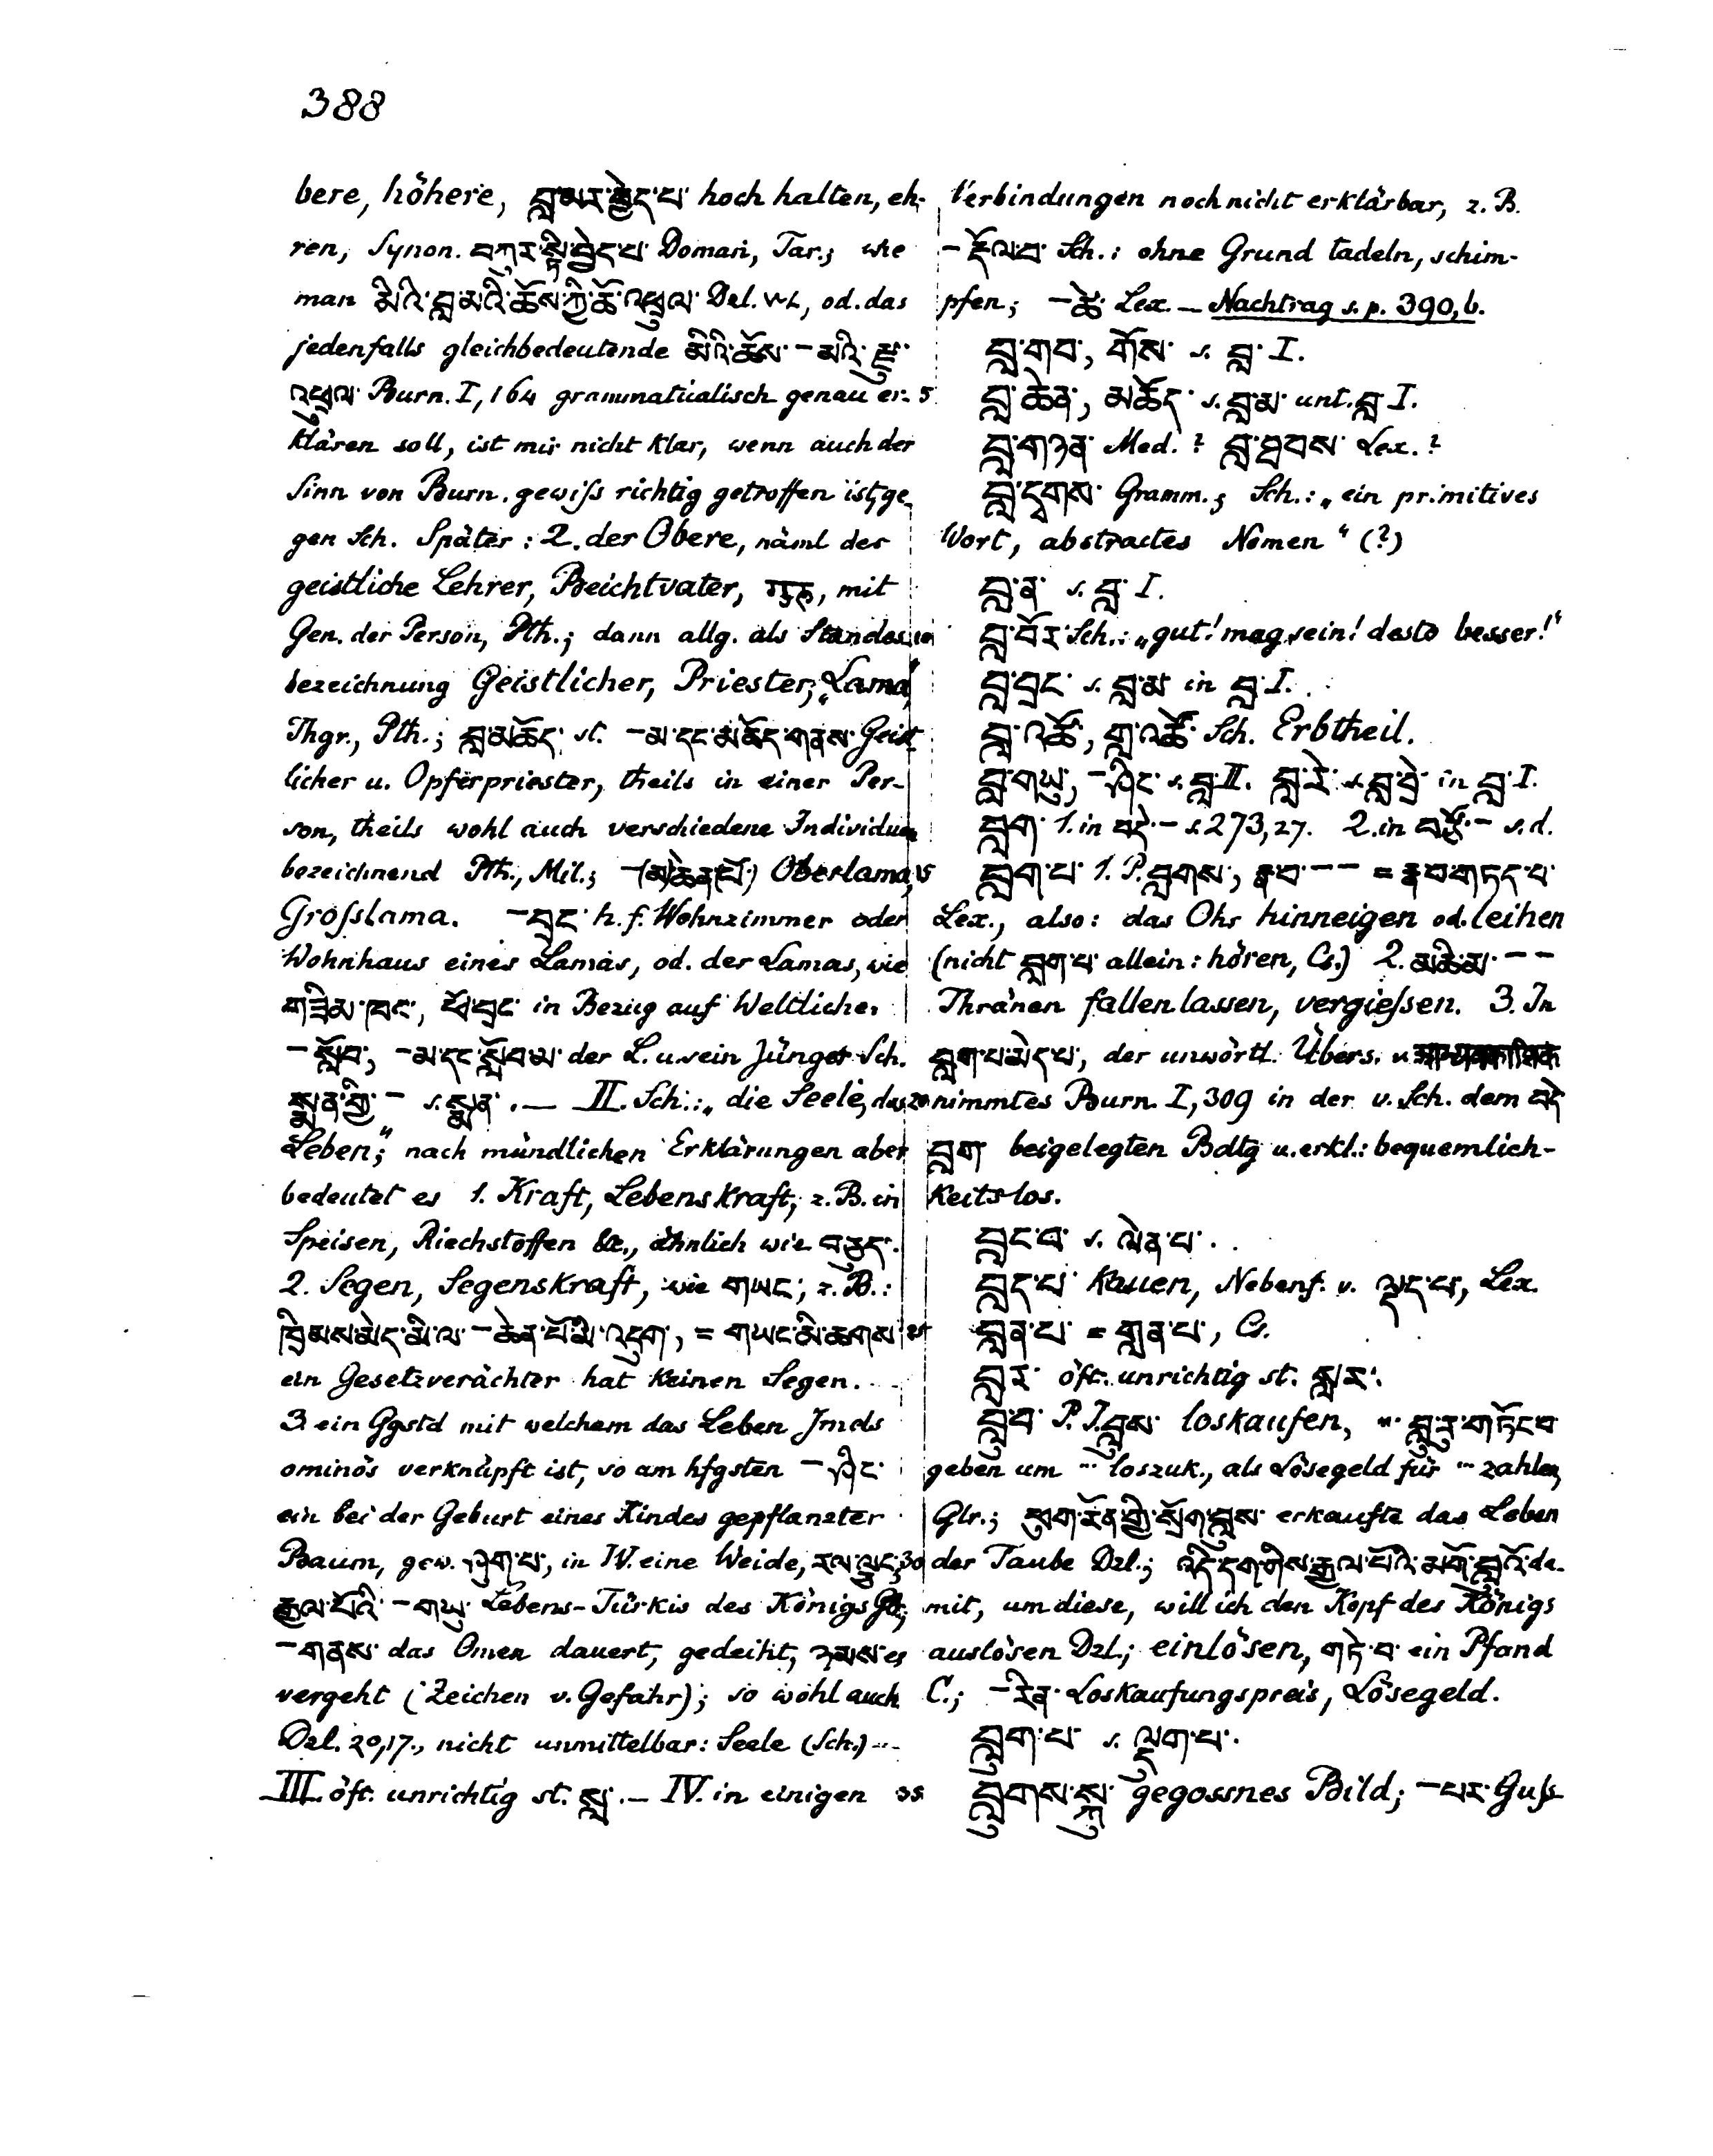 388
bere, höhere, བླ་མར་བྱེད་པ་ hoch halten, eh-
ren, Synon. བཀུར་སྟི་བྱེད་པ་ Doman, Tar.; wie
man མིའི་བླ་མའི་ཆོས་ཀྱི་ཆོ་འཕྲུལ་ Dzl. od. das
jedenfalls gleichbedeutende མིའི་ཆོས་ – མའི་རྫུ་
འཕྲུལ་ Burn. I, 164 grammaticalisch genau er- 5
klären soll, ist mir nicht klar, wenn auch der
Sinn von Burn. gewiſs richtig getroffen ist, ge-
gen Sch. Später: 2. der Obere, näml der
geistliche Lehrer, Beichtvater, गुरु, mit
Gen. der Person, Pth.; dann allg. als Standes- 10
bezeichnung Geistlicher, Priester, „Lama“
Thgr., Pth.; བླ་མཆོད་ st. – མ་དང་མཆོད་གནས་ Geist-
licher u. Opferpriester, theils in einer Per-
son, theils wohl auch verschiedene Individuen
bezeichnend Pth., Mil.; – (མ)ཆེན་(པོ་) Oberlama, 15
Groſslama. – བྲང་ h. f. Wohnzimmer oder
Wohnhaus eines Lamas, od. der Lamas, wie
གཟིམ་ཁང་, ཕོ་བྲང་ in Bezug auf Weltliche.
– སློབ་, – མ་དང་སློབ་མ་ der L. u. sein Jünger Sch.
སྨན་གྱི་ – s. སྨན་. — II. Sch.: „die Seele, das 20
Leben;“ nach mündlichen Erklärungen aber
bedeutet es 1. Kraft, Lebenskraft, z. B. in
Speisen, Riechstoffen &c., ähnlich wie བཅུད་.
2. Segen, Segenskraft, wie གཡང་; z. B.:
ཁྲིམས་མེད་མི་ལ་ – ཆེན་པོ་མི་འདུག་, = གཡང་མི་ཆགས་ 25
ein Gesetzverächter hat keinen Segen.
3. ein Ggstd mit welchem das Leben Jmds
ominös verknüpft ist, so am hfgsten – ཤིང་
ein bei der Geburt eines Kindes gepflanzter
Baum, gew. ཤུག་པ་, in W. eine Weide, 30
རྒྱལ་པོའི་ – གཡུ་ Lebens-Türkis des Königs Glr.;
– གནས་ das Omen dauert, gedeiht, ཉམས་ es
vergeht (Zeichen v. Gefahr); so wohl auch
Dzl. 20,17., nicht unmittelbar: Seele (Sch.) —
III. öft. unrichtig st. སླ་. — IV. in einigen 35
Verbindungen noch nicht erklärbar, z. B.
– རྡོལ་བ་ Sch.: ohne Grund tadeln, schim-
pfen; – ཚེ་ Lex. — Nachtrag s. p. 390, b.
བླ་གབ་, གོས་ s. བླ་ I.
བླ་ཆེན་, མཆོད་ s. བླ་མ་ unt. བླ་ I.
བླ་གཉན་ Med. ? བླ་ཐབས་ Lex. ?
བླ་དྭགས་ Gramm.; Sch.: „ein primitives
Wort, abstractes Nomen“ (?)
བླ་ན་ s. བླ་ I.
བླ་བོར་ Sch.: „gut! mag sein! desto besser!“
བླ་བྲང་ s. བླ་མ་ in བླ་ I.
བླ་འཚོ་, གླ་འཚོ་ Sch. Erbtheil.
བླ་གཡུ་, – ཤིང་ s. བླ་ II. བླ་རེ་ s. བླ་བྲེ་ in བླ་ I.
བླག་ 1. in བདེ་ – s. 273,27. 2. in – s. d.
བླག་པ་ 1. P. བླགས་, རྣ་བ་ – – = རྣ་བ་གཏད་པ་
Lex., also: das Ohr hinneigen od. leihen
(nicht བླག་པ་ allein: hören, Cs.) 2. མཆི་མ་ – –
Thränen fallen lassen, vergieſsen. 3. In
བླག་པ་མེད་པ་, der unwörtl. Übers. v.
nimmtes Burn. I, 309 in der v. Sch. dem བདེ་
བླག་ beigelegten Bdtg u. erkl.: bequemlich-
keitslos.
བླང་བ་ s. ལེན་པ་.
བླད་པ་ kauen, Nebenf. v. ལྡད་པ་, Lex.
བླན་པ་ = གླན་པ་, Cs.
བླར་ öft. unrichtig st. སླར་.
བླུ་བ་ P. I. བླུས་ loskaufen, ... བླུ་རུ་གཏོང་བ་
geben um ... loszuk., als Lösegeld für ... zahlen,
Glr.; ཕུག་རོན་གྱི་སྲོག་བླུས་ erkaufte das Leben
der Taube Dzl.; འདི་དག་གིས་རྒྱལ་པོའི་མགོ་བླུའོ་ da-
mit, um diese, will ich den Kopf des Königs
auslösen Dzl.; einlösen, གཏེ་བ་ ein Pfand
C.; – རིན་ Loskaufungspreis, Lösegeld.
བླུག་པ་ s. ལྡུག་པ་.
བླུགས་སྐུ་ gegossnes Bild; – པར་ Guſs-